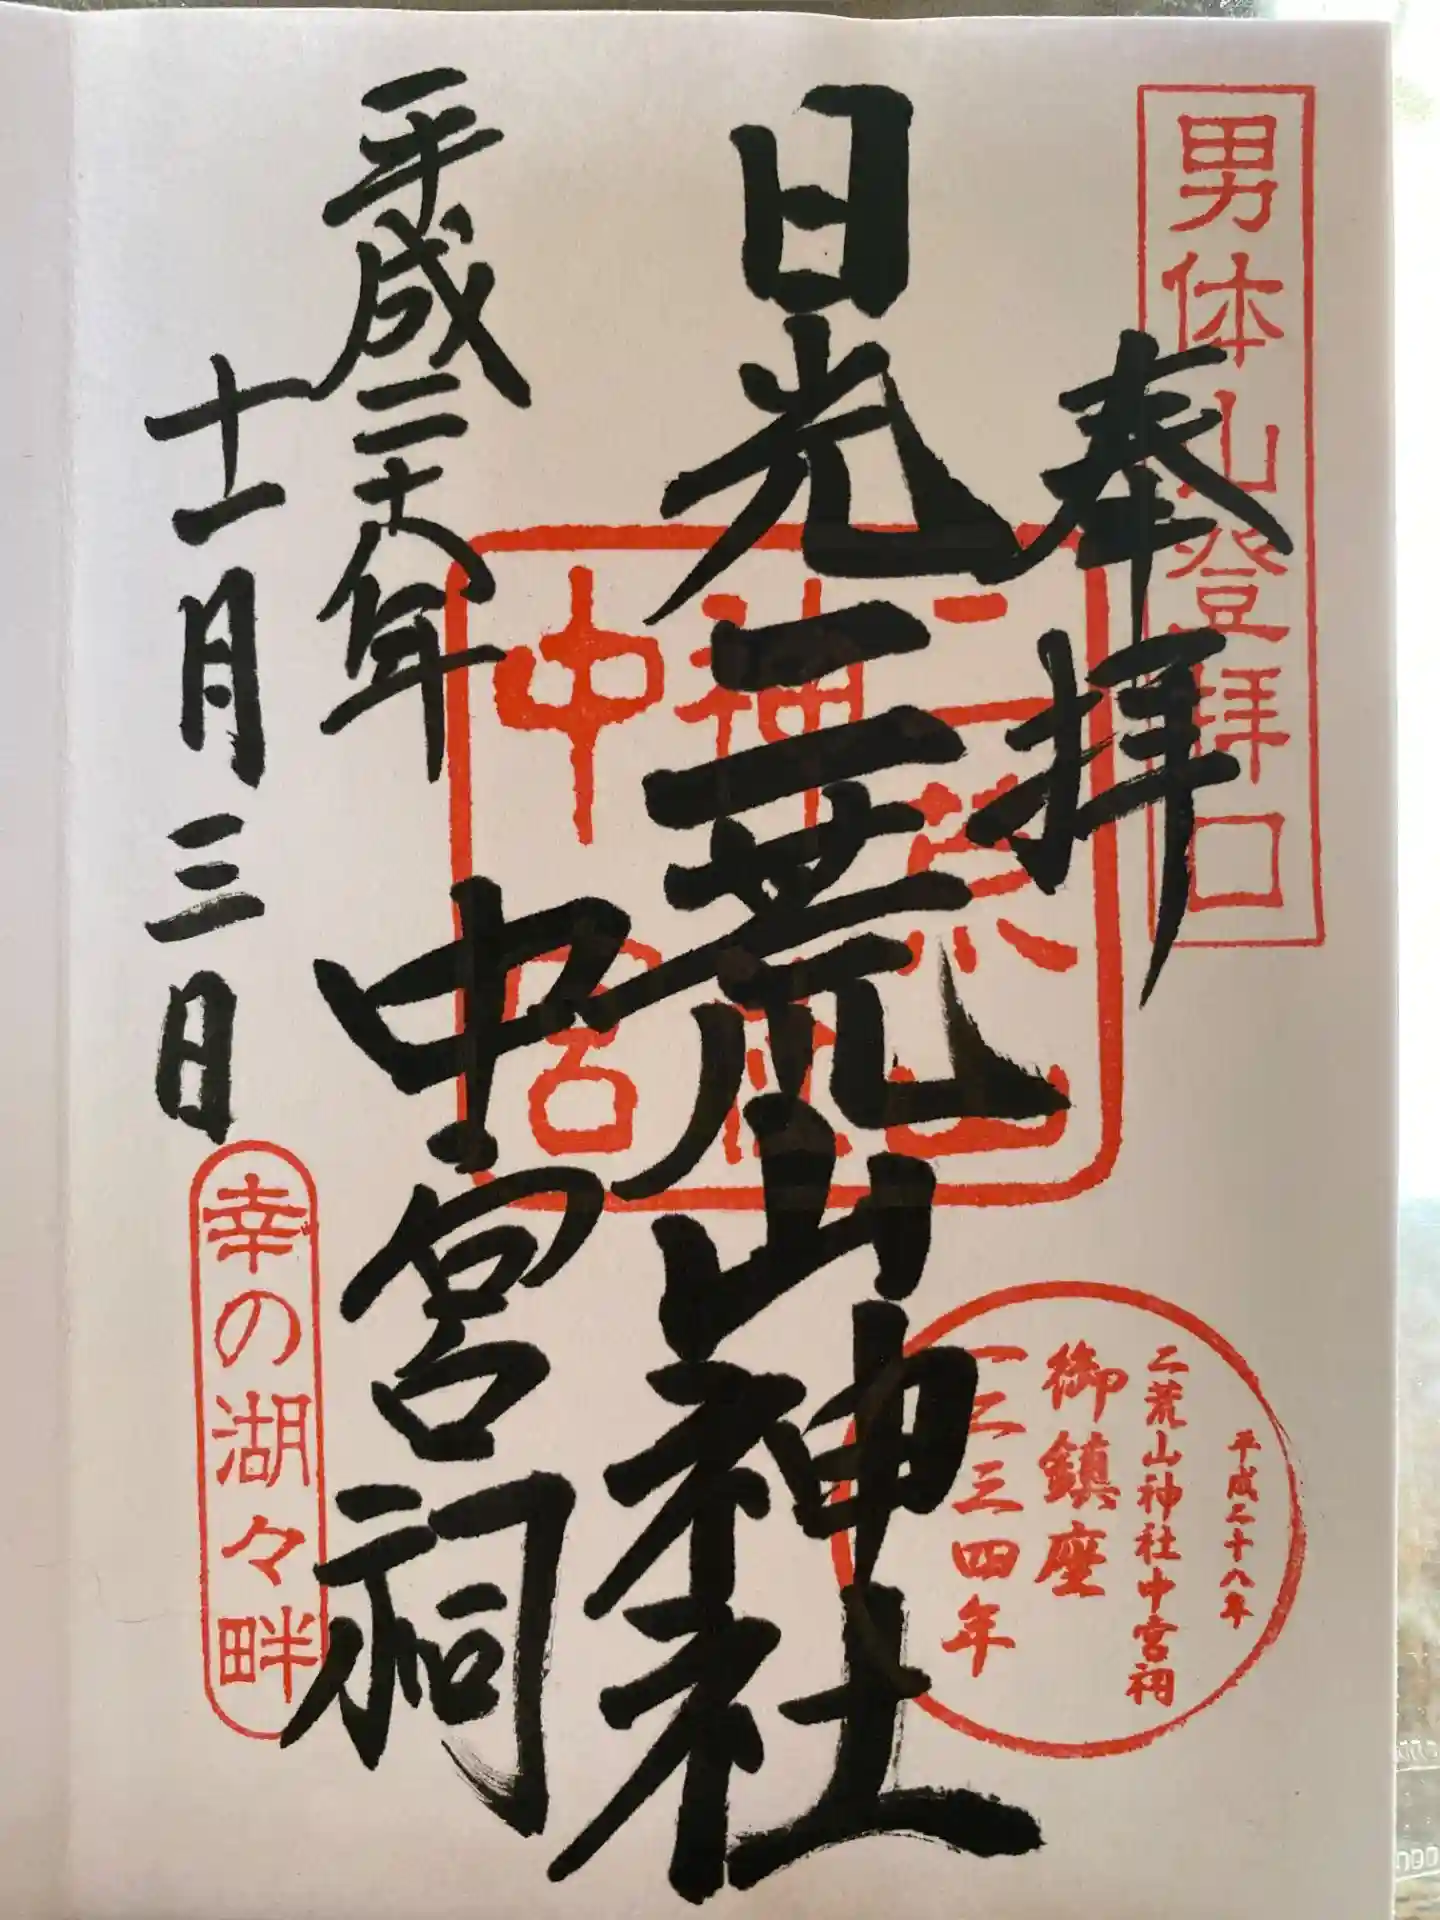 男体山登拝口
奉拝
日光二荒山神社
中宮祠
平成二十八年
十一月三日
二荒山神社
中宮
平成二十八年
二荒山神社中宮祠
御鎮座
一二三四年
幸の湖々畔